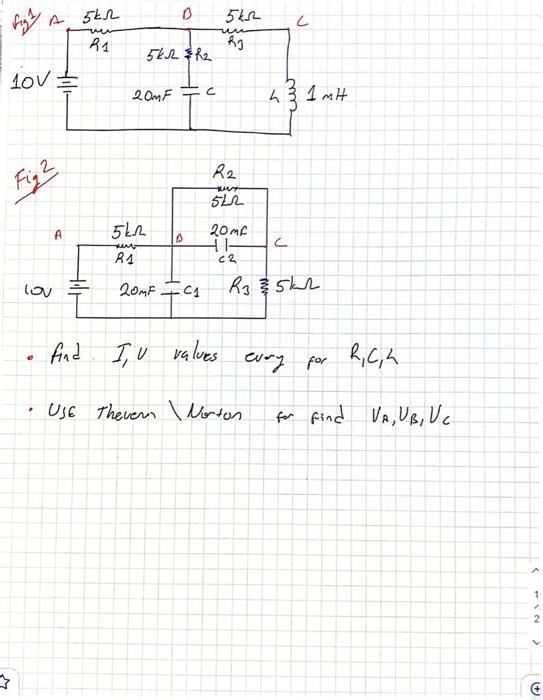 fig1 A 5kΩ B 5kΩ C
R1 R3
5kΩ R2
10V 20mF C L 1 mH
Fig2
R2
5kΩ
A 5kΩ B 20mF C
R1 C2
10V 20mF C1 R3 5kΩ
• find I, V values every for R,C,L
• USE Thevenn \ Norton for find VA, VB, VC
1
2